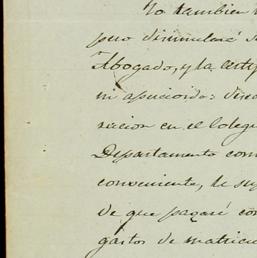 Yo tambien
pero disimularé
Abogado, y la
mi
racion en el Coleg
Departamento com
conveniente, de su
de que pagaré con
gastos de matricu